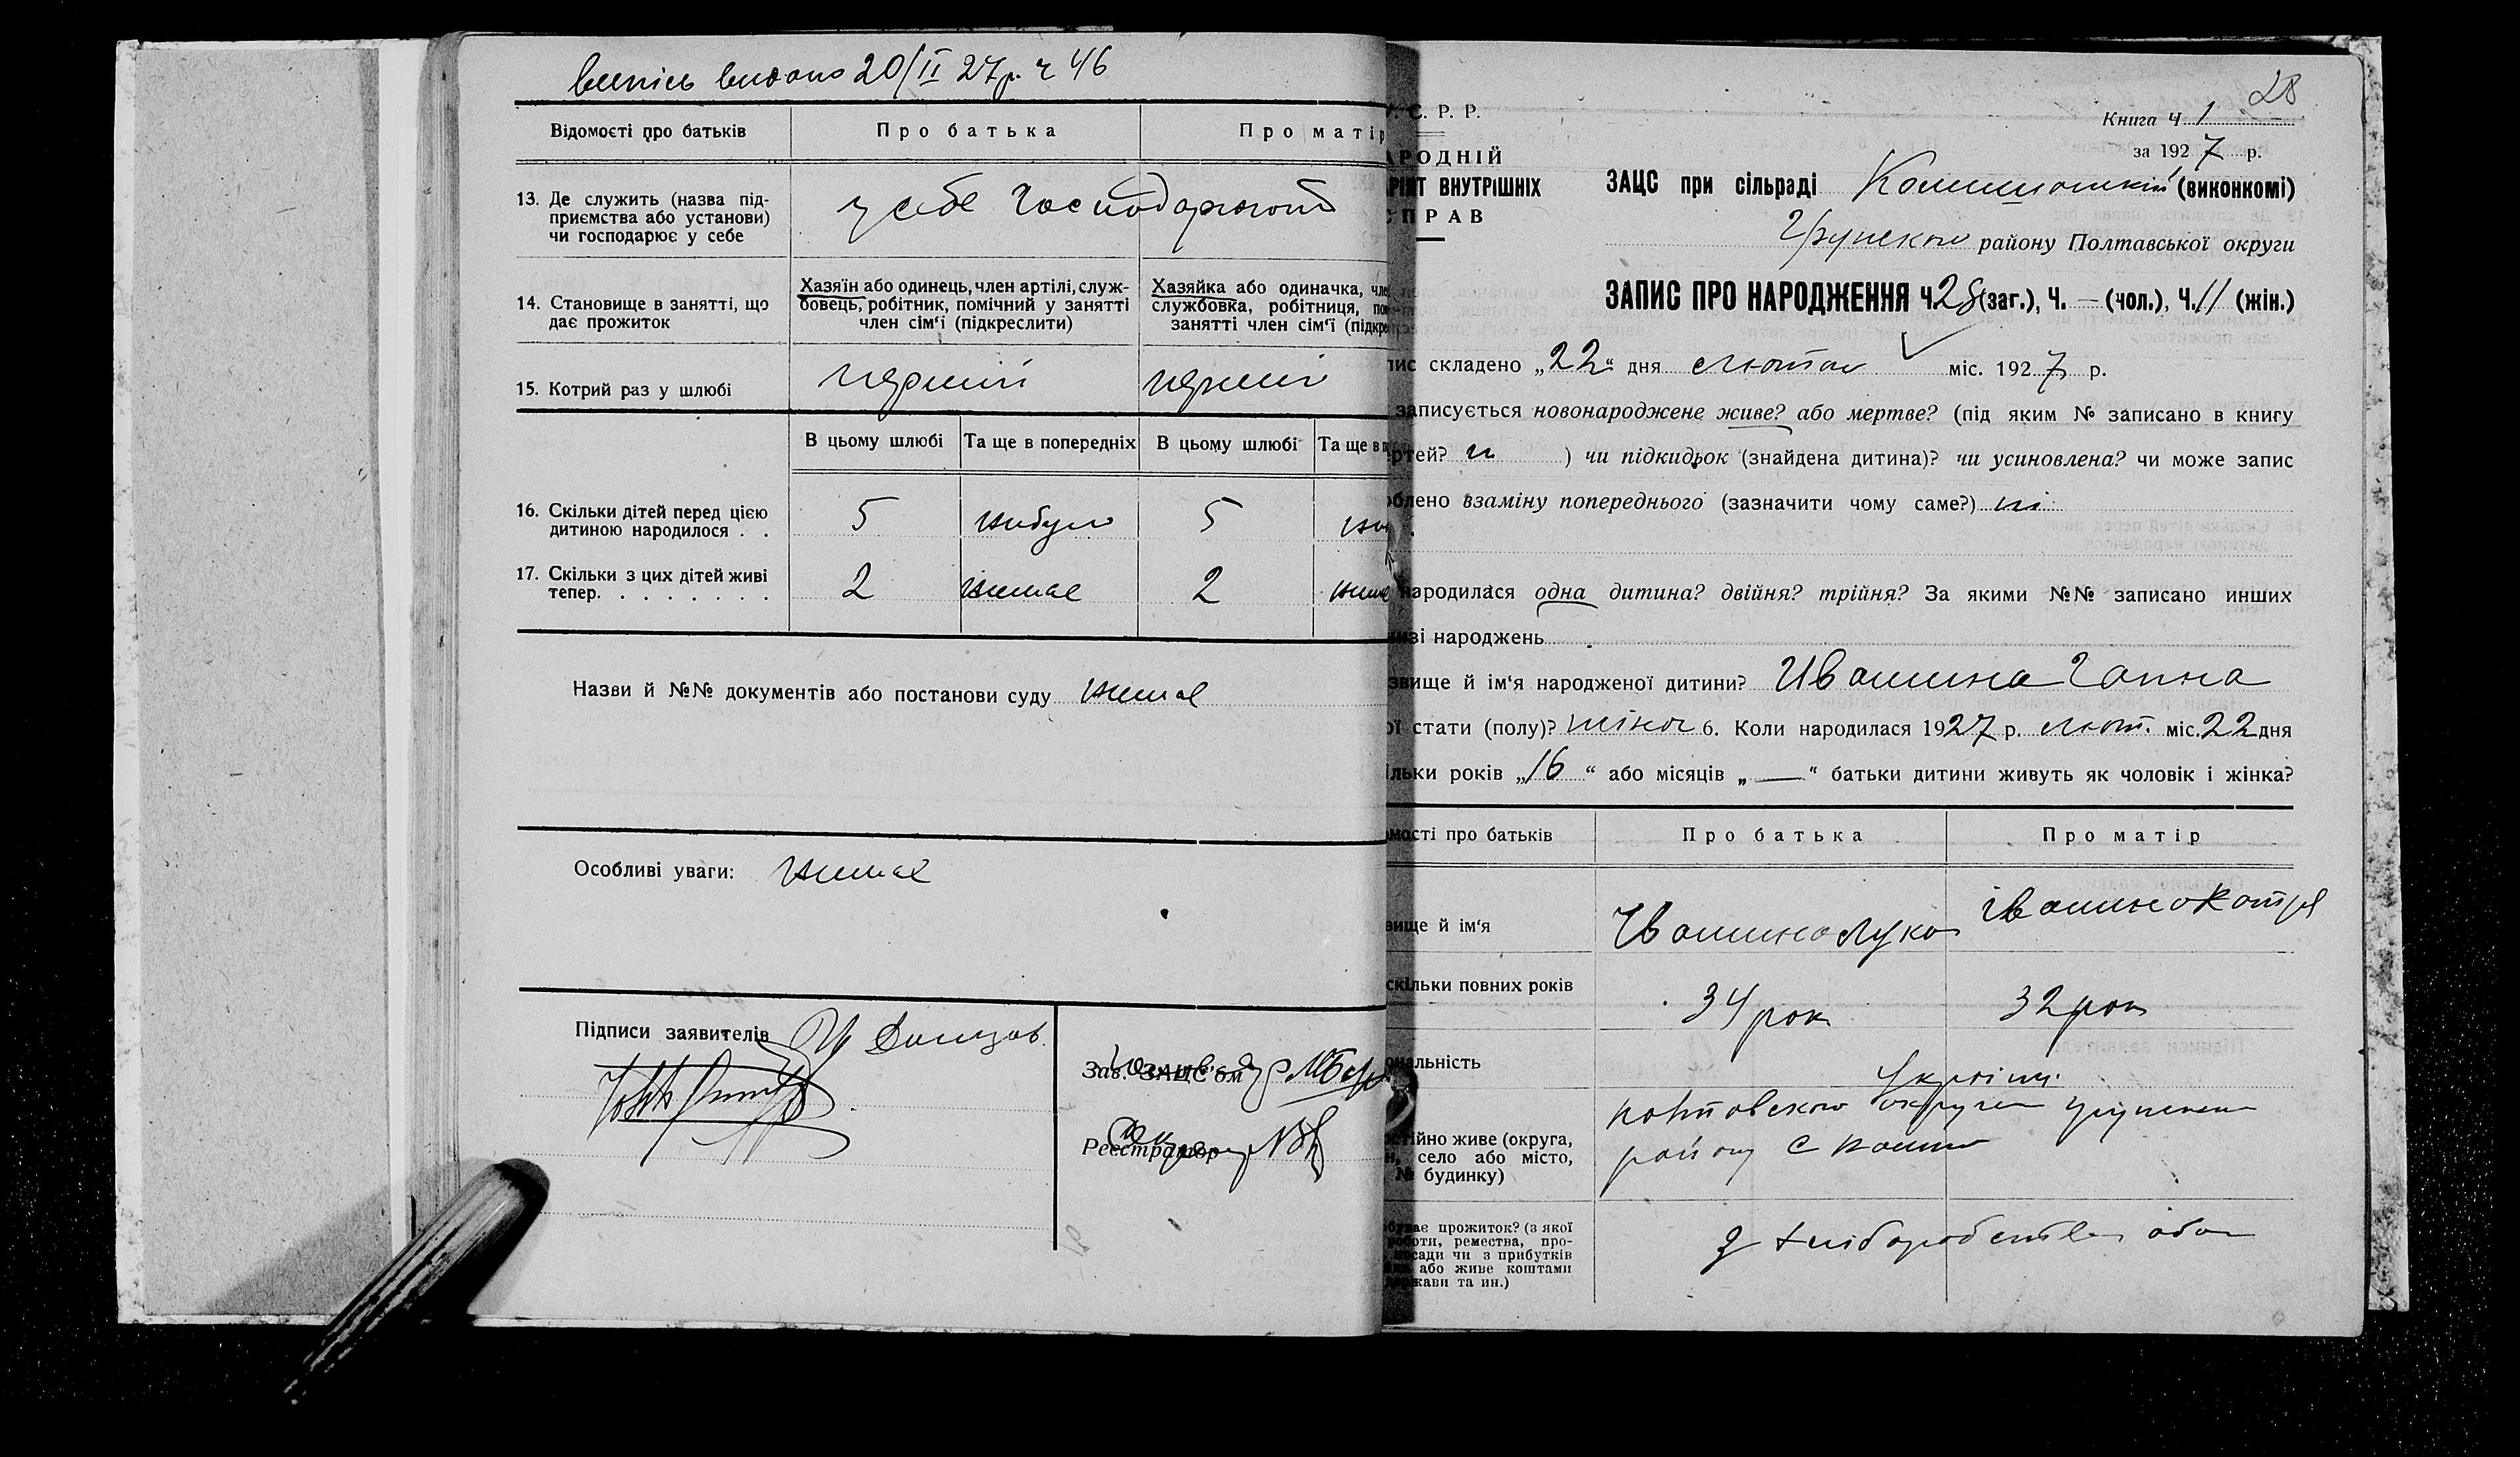 випись видано 20/II 27р. ч 46
Відомості про батьків
Про батька
Про матір
13. Де служить (назва під-
приємства або установи)
чи господарює у себе
у себе господарюють
14. Становище в занятті, що
дає прожиток
Хазяїн або одинець, член артілі, служ-
бовець, робітник, помічний у занятті
член сім'ї (підкреслити)
Хазяйка або одиначка, чле
службовка, робітниця, по
занятті член сім'ї (підкре
15. Котрий раз у шлюбі
перший
перший
В цьому шлюбі
Та ще в попередніх
В цьому шлюбі
Та ще в п
16. Скільки дітей перед цією
дитиною народилося . .
5
небуло
5
17. Скільки з цих дітей живі
тепер. . . . . . . .
2
немає
2
Назви й №№ документів або постанови суду немає
Особливі уваги: немає
Підписи заявителів
Зав. ЗАЦС'ом
Реєстратор
28
У. С. Р. Р.
Книга Ч 1
за 1927 р.
АРОДНІЙ
РІЯТ ВНУТРІШНІХ
СПРАВ
ЗАЦС при сільраді (виконкомі)
Грунского району Полтавської округи
ЗАПИС ПРО НАРОДЖЕННЯ Ч 28 (заг.), Ч. — (чол.), Ч. 11 (жін.)
пис складено „22" дня лютого міс. 1927 р.
записується новонароджене живе? або мертве? (під яким № записано в книгу
ертей? ні ) чи підкидьок (знайдена дитина)? чи усиновлена? чи може запис
облено взаміну попереднього (зазначити чому саме?) ні
народилася одна дитина? двійня? трійня? За якими №№ записано инших
изі народжень
звище й ім'я народженої дитини? Ивашина Ганна
ої стати (полу)? жіноч 6. Коли народилася 1927 р. лют. міс. 22 дня
ільки років „16" або місяців „—" батьки дитини живуть як чоловік і жінка?
мості про батьків
Про батька
Про матір
вище й ім'я
Ивашина Лука
івашина Котря
скільки повних років
34 рок
32 рок
ональність
Україн.
остійно живе (округа,
н, село або місто,
№ будинку)
полтавского округи Грунского
району с
буває прожиток? (з якої
роботи, ремества, про-
посади чи з прибутків
або живе коштами
держави та ин.)
з хліборобства оба